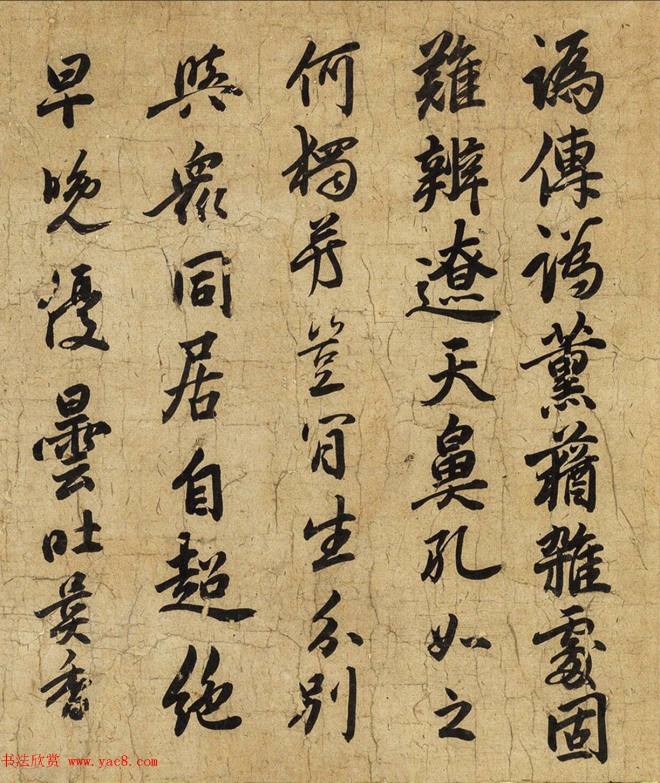 譌傳譌薰蕕雜處固
難辨遼天鼻孔如之
何獨芳豈肎生分別
與衆同居自超絶
早晚優曇吐異香
书法欣赏 www.yac8.com